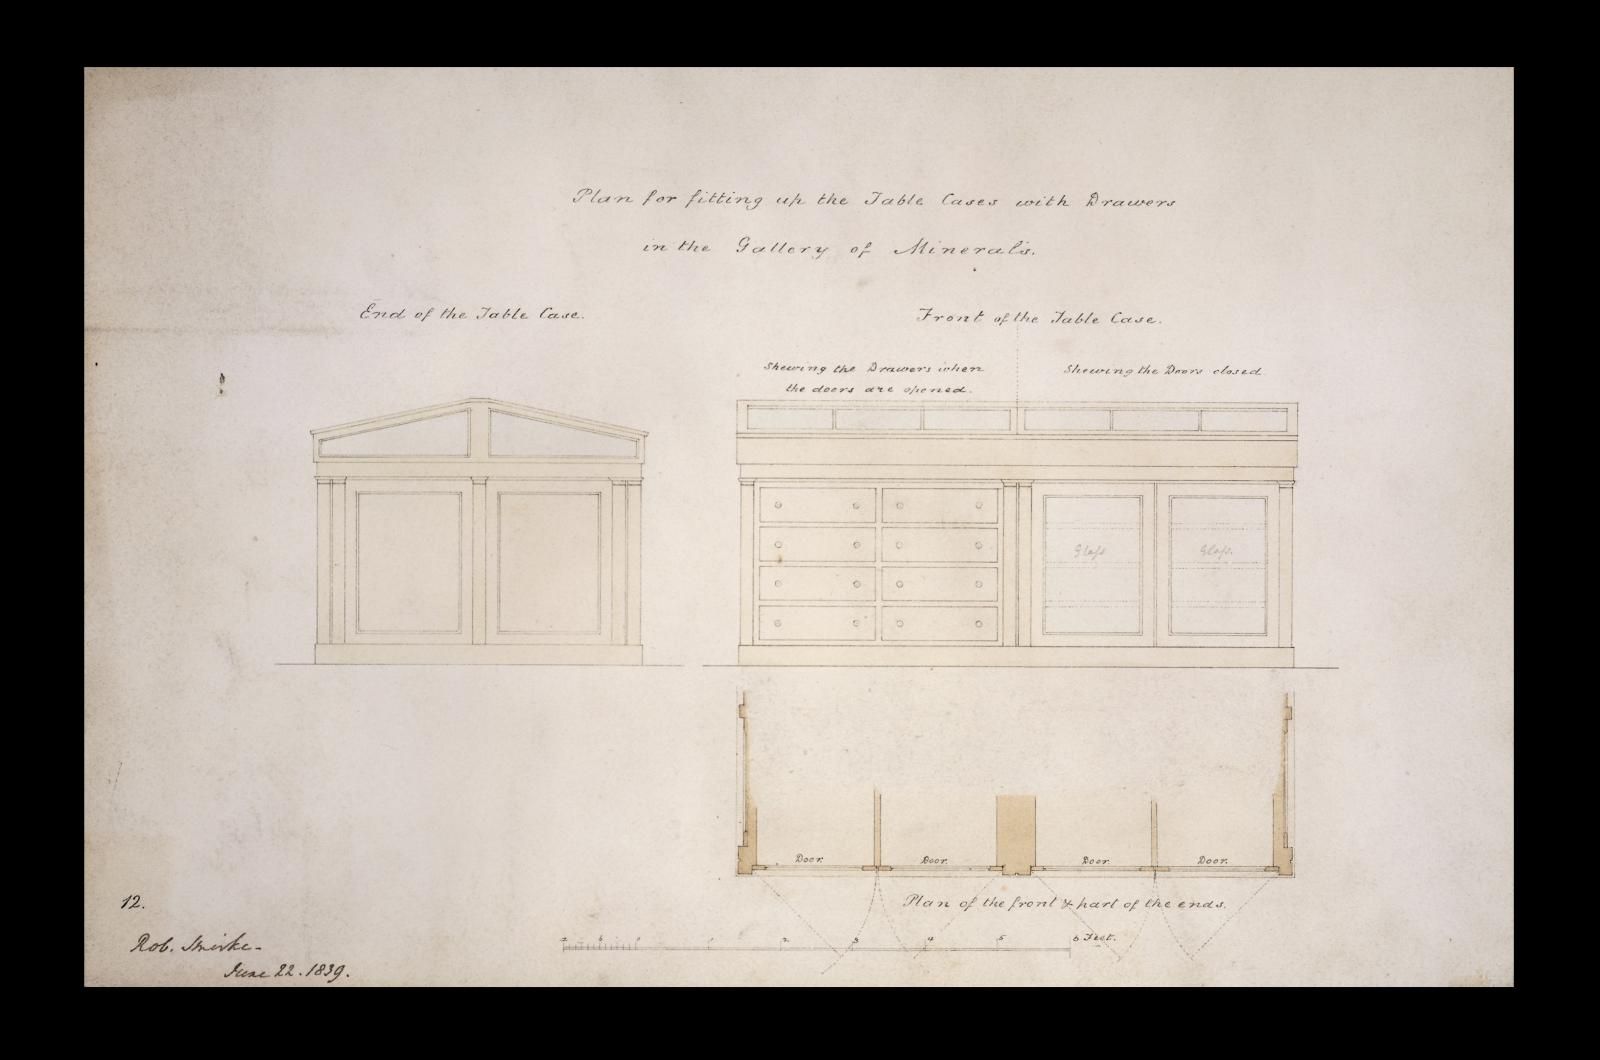 Plan for fitting up the Table Cases with Drawers
in the Gallery of Minerals.
End of the Table Case.
Front of the Table Case.
Shewing the Drawers when
the doors are opened.
Shewing the Doors closed.
Glass
Glass.
Door.
Door.
Door.
Door.
Plan of the front & part of the ends.
12.
6 1 2 3 4 5 6 Feet.
Rob. Smirke-
June 22. 1839.